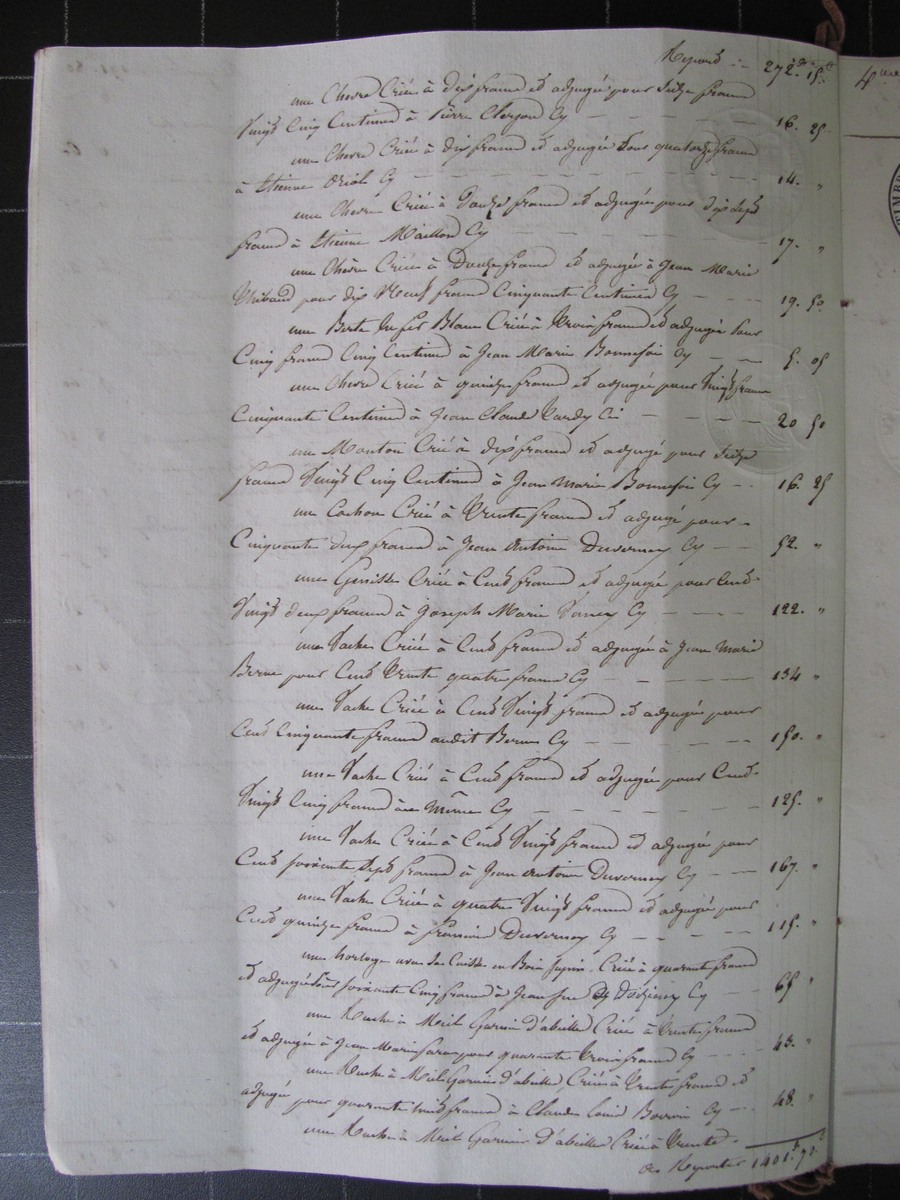 Report -- 272.fr 15.c
une Chevre Criée à dix francs et adjugée pour Seize francs
Vingt Cinq Centimes à Pierre Cy — 16. 25
une Chevre Criée à dix francs et adjugée Sous quatorze francs
à Etienne Oriol Cy — 14. "
une Chevre Criée à Douze francs et adjugée pour dix Sept
francs à Etienne Maillon Cy — 17. "
une Chèvre Criée à Douze francs et adjugée à Jean Marie
Thibaud pour dix Neuf francs Cinquante Centimes Cy — 19. 50
une Berte En fer Blanc Criée à trois francs et adjugée Pour
Cinq francs Cinq Centimes à Jean Marie Bonnefoi Cy — 5. 05
une Chevre Criée à quinze francs et adjugée pour Vingt francs
Cinquante Centimes à Jean Claude Ci — 20 50
un Mouton Crié à dix francs et adjugé pour Seize
francs Vingt Cinq Centimes à Jean Marie Bonnefoi Cy — 16. 25
un Cochon Crié à trente francs et adjugé pour -
Cinquante deux francs à Jean Antoine Duvernay Cy — 52. "
une Genisse Criée à Cent francs et adjugée pour Cent-
Vingt deux francs à Joseph Marie Cy — 122. "
une Vache Criée à Cent francs et adjugée à Jean Marie
Berne pour Cent trente quatre francs Cy — 134 "
une Vache Criée à Cent Vingt francs et adjugée pour
Cent Cinquante francs audit Berne Cy — 150. "
une Vache Criée à Cent francs et adjugée pour Cent-
Vingt Cinq francs à Même Cy — 125. "
une Vache Criée à Cent Vingt francs et adjugée pour
Cent soixante Sept francs à Jean Antoine Duvernay Cy — 167. "
une Vache Criée à quatre Vingt francs et adjugée pour
Cent quinze francs à francois Duvernay Cy — 115. "
une horloge avec Sa Caisse en Bois Sapin. Criée à quarante francs
et adjugée Sous soixante Cinq francs à Jean Cy — 65 "
une Ruche à Miel Garnie d'abeilles Criée à trente francs
et adjugée à Jean Marie pour quarante trois francs Cy — 43. "
une Ruche à Miel Garnie d'abeilles Criée à trente francs et
adjugée pour quarante huit francs à Claude Louis Cy — 48. "
une Ruche à Miel Garnie d'abeilles Criée à trente -
à Reporter 1401.fr 70.c